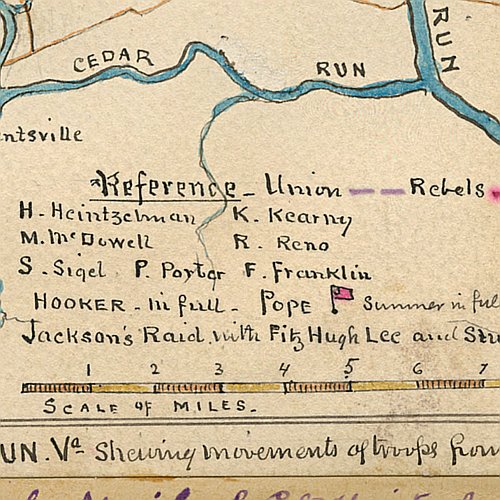 CEDAR RUN RUN
ntsville
Reference - Union Rebels
H. Heintzelman K. Kearny
M. McDowell R. Reno
S. Sigel P. Porter F. Franklin
HOOKER - in full - POPE Sumner in ful
Jackson's Raid with Fitz Hugh Lee and Stu
1 2 3 4 5 6 7
SCALE OF MILES.
UN. Va Shewing movements of troops from